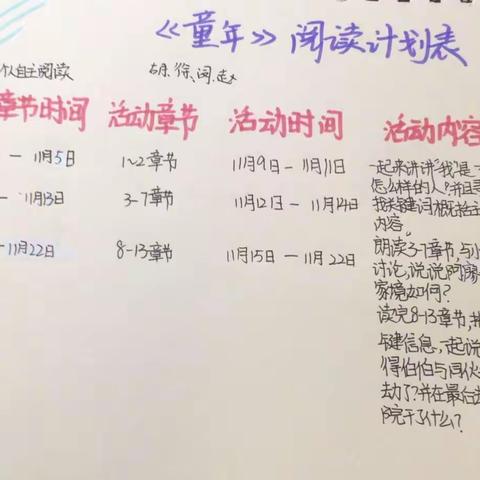 《童年》阅读计划表
伙自主阅读 胡、徐、闵、赵
章节时间 活动章节 活动时间 活动内容
- 11月5日 1~2章节 11月9日-11月11日 一起来讲讲"我"是
怎么样的人?并且
- 11月13日 3-7章节 11月12日-11月14日 找关键词概括主
内容。
- 11月22日 8-13章节 11月15日-11月22日 朗读3-7章节,与小
讨论,说说阿廖
家境如何?
读完8-13章节,
键信息,一起说
得伯伯与同伙
去了?并在最后
院干了什么?